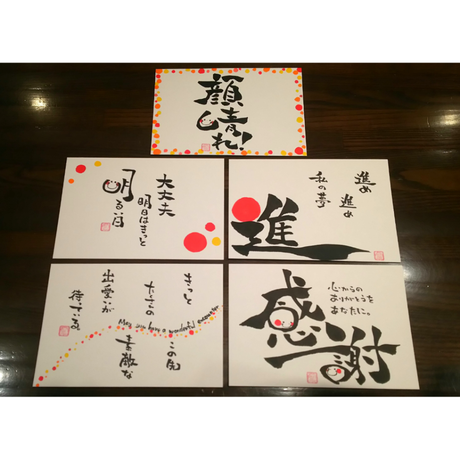 顔晴れ!
大丈夫
明日はきっと
進め
進め
私の夢
進
きっと この先
たくさんの 素敵な
出愛いが
待ってる
May you have a wonderful encounter
心からの
ありがとうを
あなたに。
感謝